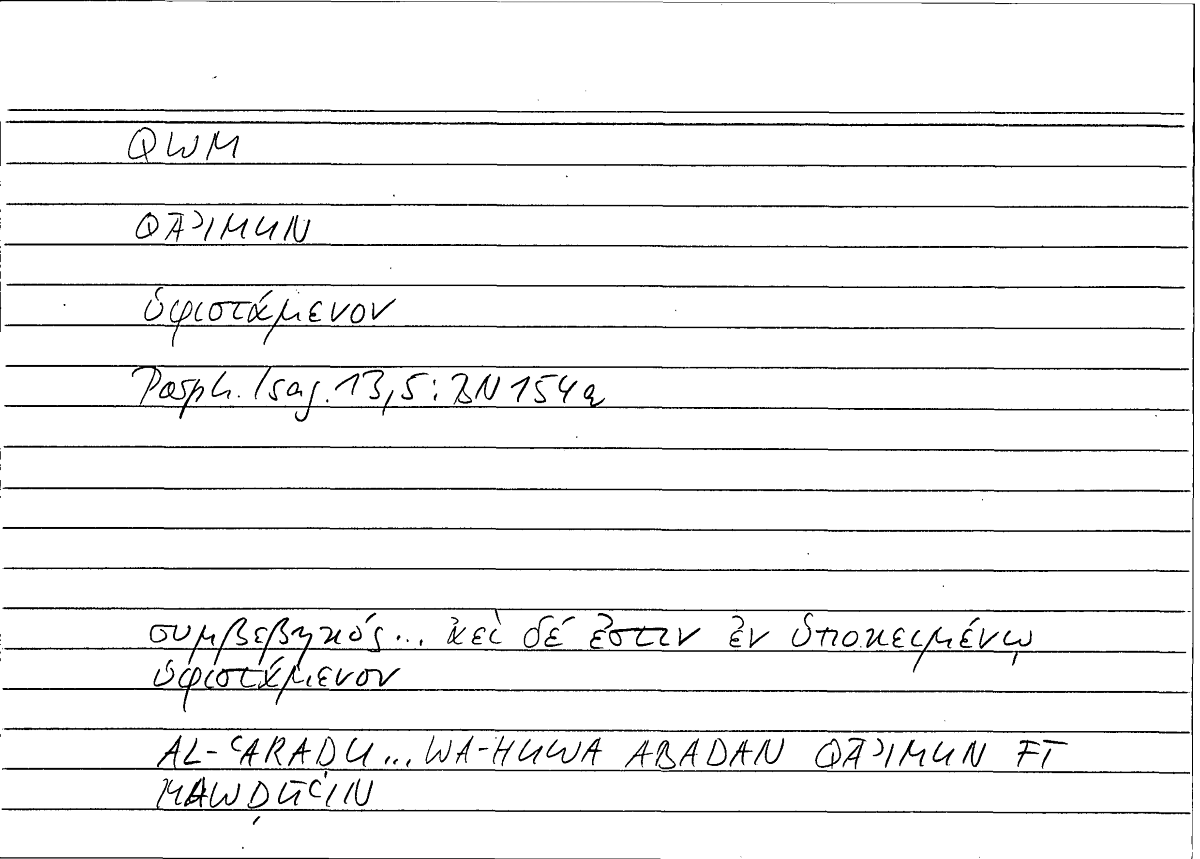 QWM
QĀʾIMUN
ὑφιστάμενον
Porph. Isag. 13,5: BN 154a
συμβεβηκός... ἀεὶ δέ ἐστιν ἐν ὑποκειμένῳ
ὑφιστάμενον
AL-ʿARAḌU... WA-HUWA ABADAN QĀʾIMUN FĪ
MAWḌŪʿIN